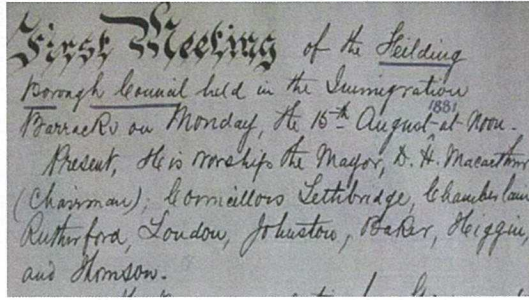 First Meeting of the Feilding
Borough Council held in the Immigration
Barracks on Monday, the 15th August 1881 at Noon.
Present, His Worship the Mayor, D. H. Macarthur
(Chairman); Councillors Lethbridge, Chamberlain
Rutherford, London, Johnston, Baker, Higgin,
and Thomson.